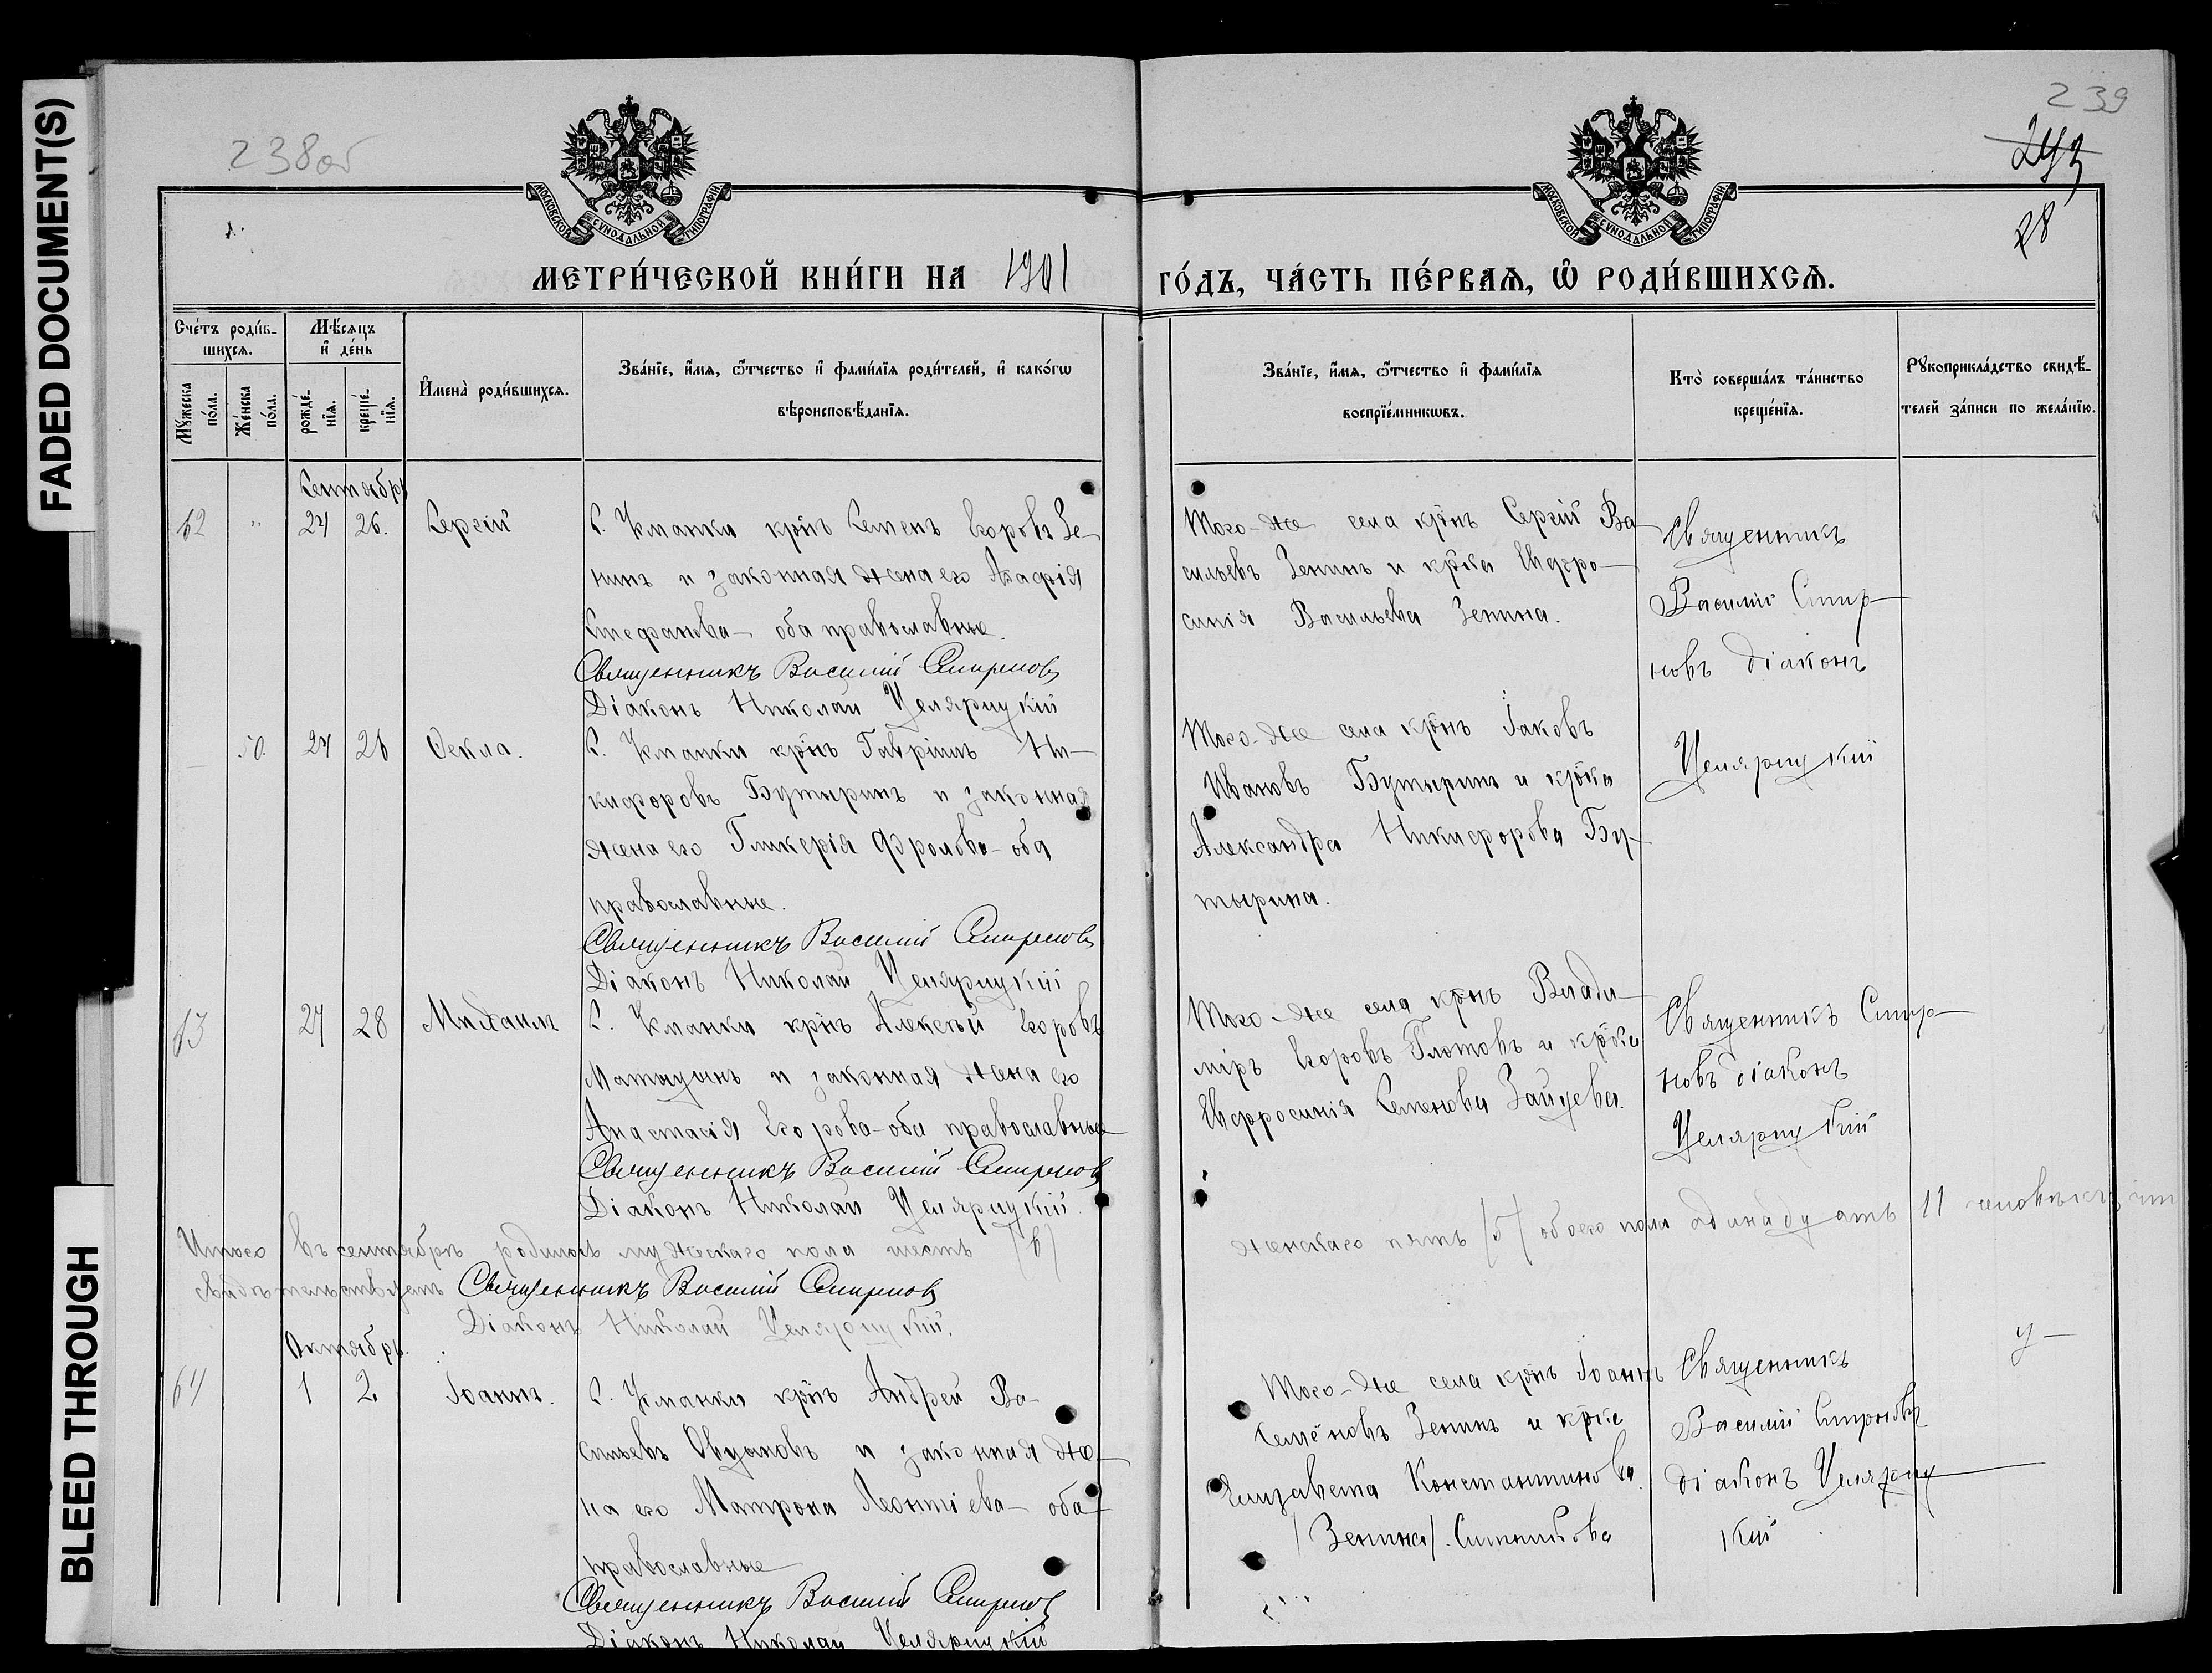 FADED DOCUMENT(S)
BLEED THROUGH
238об
239
243
28
МОСКОВСКОЙ СѴНОДАЛЬНОЙ ТИПОГРАФІИ
МОСКОВСКОЙ СѴНОДАЛЬНОЙ ТИПОГРАФІИ
МЕТРИ́ЧЕСКОЙ КНИ́ГИ НА 1901 ГО́ДЪ, ЧА́СТЬ ПЕ́РВАѦ, Ѡ҆ РОДИ́ВШИХСѦ.
Сче́тъ роди́в-
шихсѧ.
Мꙋ́жеска по́ла.
Же́нска по́ла.
Мѣ́сѧцъ
и҆ де́нь
рожде́-
нїѧ.
креще́-
нїѧ.
И҆мена̀ роди́вшихсѧ.
Зва́нїе, и҆́мѧ, ѻ҆́тчество и҆ фами́лїѧ роди́телей, и҆ како́гѡ
вѣроисповѣ́данїѧ.
Зва́нїе, и҆́мѧ, ѻ҆́тчество и҆ фами́лїѧ
воспрїе́мникѡвъ.
Кто̀ соверша́лъ та́инство
креще́нїѧ.
Рꙋкоприкла́дство свидѣ́-
телей за́писи по жела́нїю.
Сентябрь
62 " 24 26. Сергій
С. Уманки крнъ Семенъ Егоровъ Зе-
нинъ и законная жена его Агафія
Стефанова- оба православные.
Священникъ Василій Смирновъ
Діаконъ Николай Целярицкій
Того-же села крнъ Сергій Ва
сильевъ Зенинъ и крка Евфро-
синія Васильева Зенина.
Священникъ
Василій Смир-
новъ діаконъ
Целярицкій
50. 24 26 Ѳекла.
С. Уманки крнъ Гавріилъ Ни-
кифоровъ Бутыринъ и законная
жена его Гликерія Фролова- оба
православные.
Священникъ Василій Смирновъ
Діаконъ Николай Целярицкій
Того-же села крнъ Іаковъ
Ивановъ Бутыринъ и крка
Александра Никифорова Бу-
тырина.
63 27 28 Михаилъ
С. Уманки крнъ Алексѣй Егоровъ
жена его
Анастасія Егорова-оба православные
Священникъ Василій Смирновъ
Діаконъ Николай Целярицкій.
Того-же села крнъ Влади-
міръ Егоровъ Глотовъ и крка
Евфросинія Семенова Зайцева.
Священникъ Смир-
новъ діаконъ
Целярицкій
Итого въ сентябрѣ родилось мужескаго пола шесть (6)
женскаго пять (5) обоего пола одинадцать 11 человѣкъ, что
свидѣтельствуемъ Священникъ Василій Смирновъ
Діаконъ Николай Целярицкій.
Октябрь.
64 1 2 Іоаннъ.
С. Уманки крнъ Андрей Ва-
сильевъ и законная же-
на его Матрона Леонтіева- оба
православные
Священникъ Василій Смирновъ
Діаконъ Николай Целярицкій
Того-же села крнъ Іоаннъ
Семёновъ Зенинъ и крка
Елизавета Константинова
(Зенина). Ситникова
Священникъ
Василій Смирновъ
діаконъ Целяриц-
кій